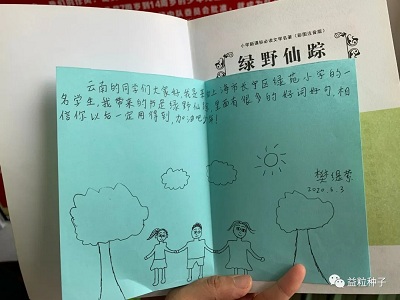 小学新课标必读文学名著（彩图注音版）
绿野仙踪
云南的同学们大家好，我是来自上海市长宁区绿苑小学的一
名学生，我带来的书是绿野仙踪，里面有很多的好词好句，相
信你以后一定用得到，加油吧少年！
2020.6.3
益粒种子